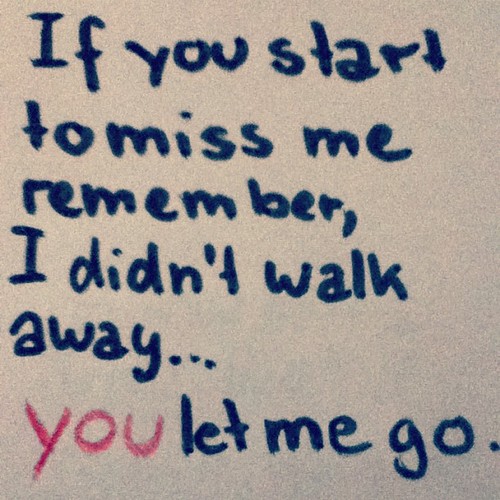 If you start
to miss me
remember,
I didn't walk
away...
you let me go.